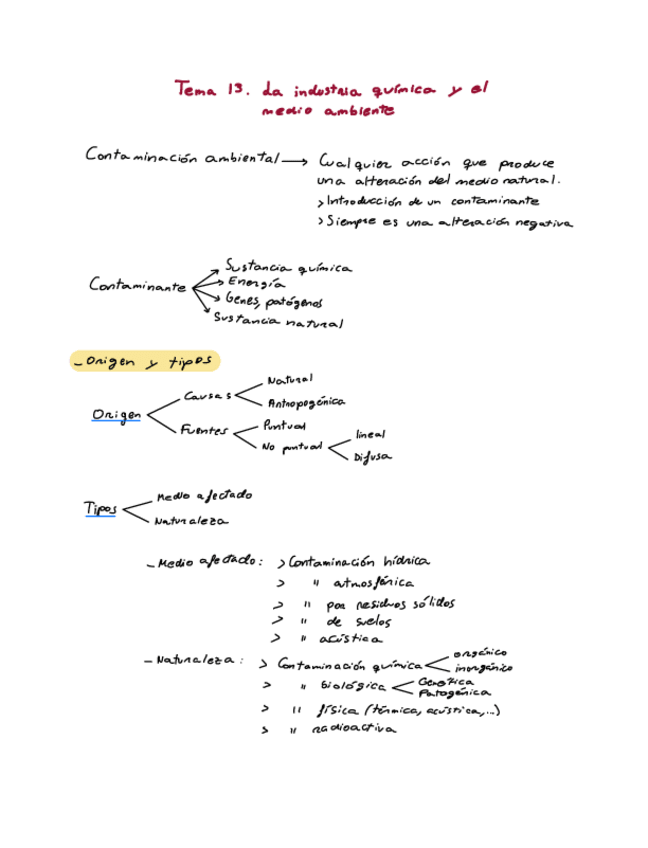 Tema 13. La industria química y el
medio ambiente
Contaminación ambiental → Cualquier acción que produce
una alteración del medio natural.
> Introducción de un contaminante
> Siempre es una alteración negativa
Sustancia química
Contaminante
Energía
Genes, patógenos
Sustancia natural
- Origen y tipos
Natural
Causas
Antropogénica
Origen
Puntual
Fuentes
No puntual
lineal
Difusa
Medio afectado
Tipos
Naturaleza
- Medio afectado: > Contaminación hídrica
> " atmosférica
> " por residuos sólidos
> " de suelos
> " acústica
- Naturaleza: > Contaminación química
orgánico
inorgánico
> " biológica
Genética
Patogénica
> " física (térmica, acústica,...)
> " radioactiva